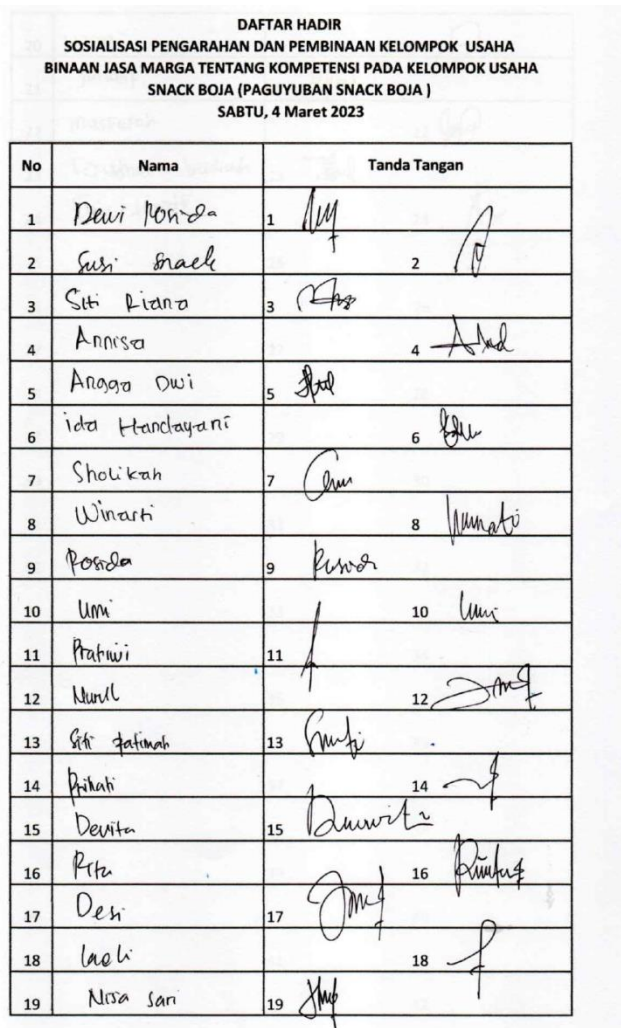 DAFTAR HADIR
SOSIALISASI PENGARAHAN DAN PEMBINAAN KELOMPOK USAHA
BINAAN JASA MARGA TENTANG KOMPETENSI PADA KELOMPOK USAHA
SNACK BOJA (PAGUYUBAN SNACK BOJA )
SABTU, 4 Maret 2023
No Nama Tanda Tangan
1 Dewi Rosida 1
2 Susi Snack 2
3 Siti Riana 3
4 Annisa 4
5 Angga Dwi 5
6 ida Handayani 6
7 Sholikah 7
8 Winarti 8
9 Rosida 9
10 Umi 10 Umi
11 Pratiwi 11
12 Nurul 12
13 Siti Fatimah 13
14 Prihati 14
15 Devita 15
16 Rita 16
17 Desi 17
18 18
19 Nisa Sari 19